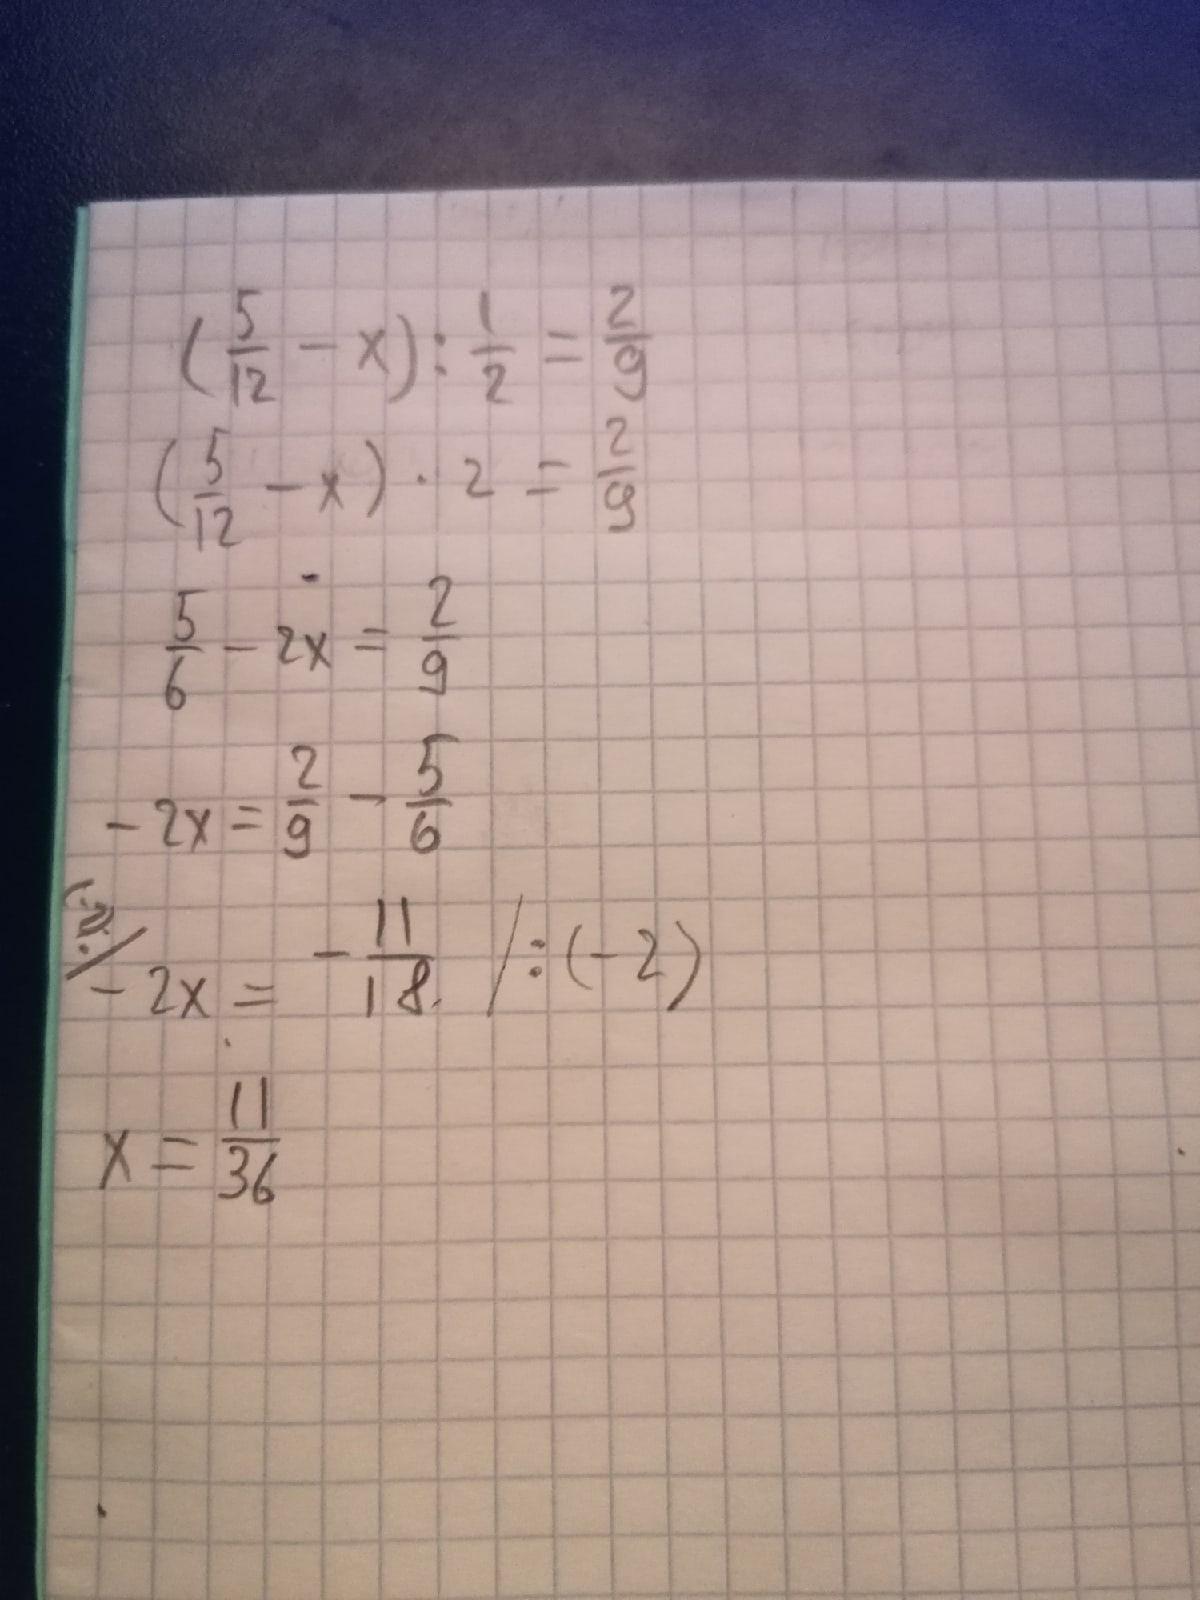 (5/12 - x) : 1/2 = 2/9
(5/12 - x) · 2 = 2/9
5/6 - 2x = 2/9
- 2x = 2/9 - 5/6
- 2x = - 11/18 /:(-2)
x = 11/36